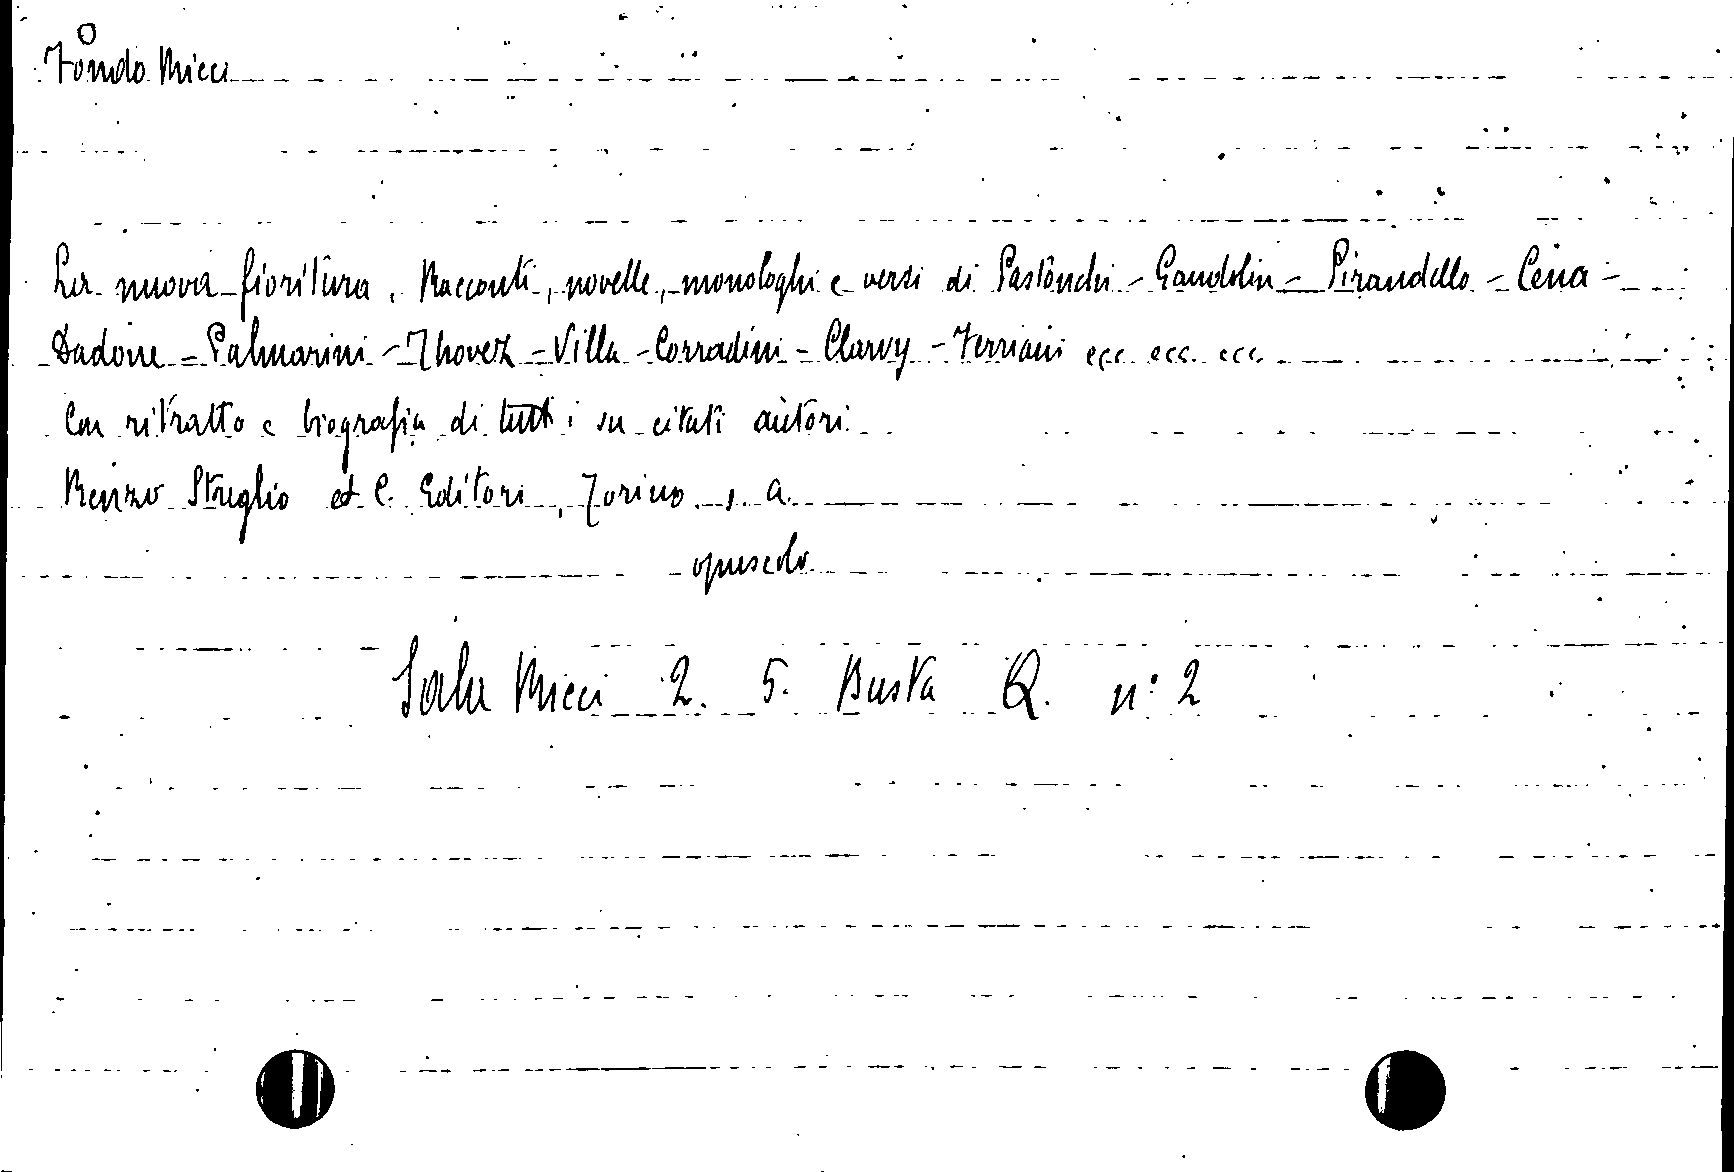 Fondo Ricci
La nuova fioritura. Racconti, novelle, monologhi e versi di Pastonchi - Gandolin - Pirandello - Cena -
Dadone - Palmarini - Thovez - Villa - Corradini - Clarvy - Ferriani ecc. ecc. ecc.
Con ritratto e biografia di tutti i su citati autori.
Renzo Streglio et C. Editori, Torino. s. a.
opuscolo
Sala Ricci 2. 5. Busta Q. n° 2